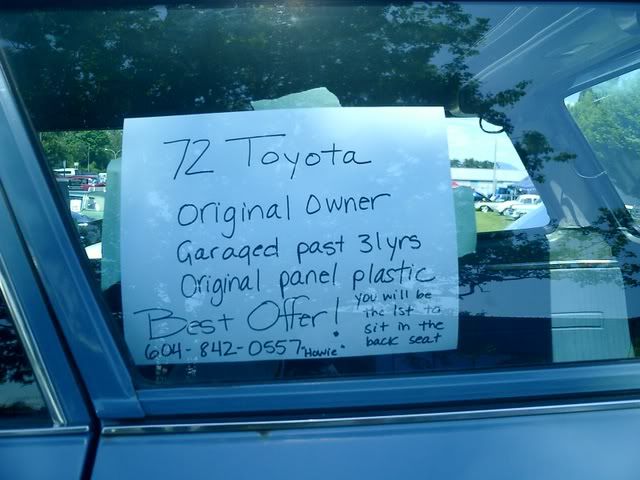 72 Toyota
original owner
Garaged past 31yrs
Original panel plastic
Best Offer!
you will be
the 1st to
sit in the
back seat
604-842-0557 "Howie"